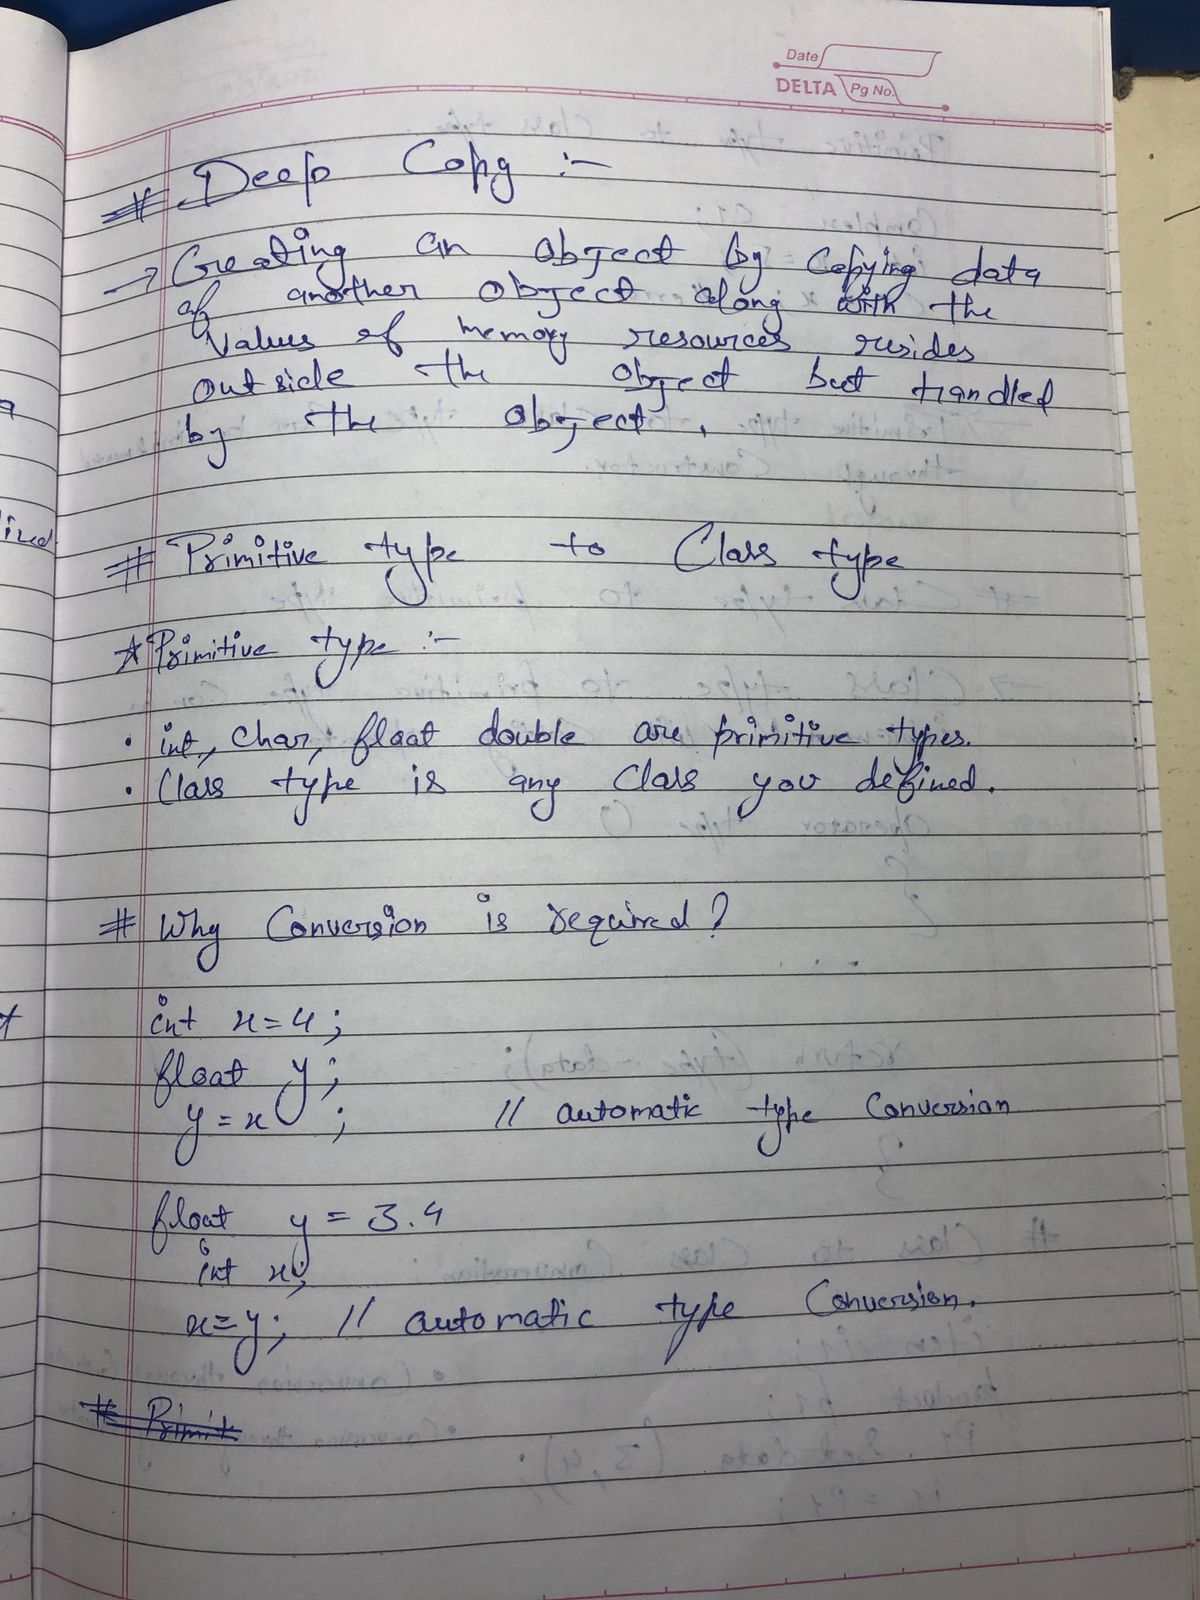 Date
DELTA Pg No.
# Deep Copy :-
→ Creating an object by Copying data
of another object along with the
Values of memory resources resides
outside the object but handled
by the object.
# Primitive type to Class type
* Primitive type :-
• int, Char, float double are primitive types.
• Class type is any Class you defined.
# Why Conversion is required?
int x=4;
float y;
y=x ; // automatic type Conversion
float y = 3.4
int x;
x=y; // automatic type Conversion.
# Primit